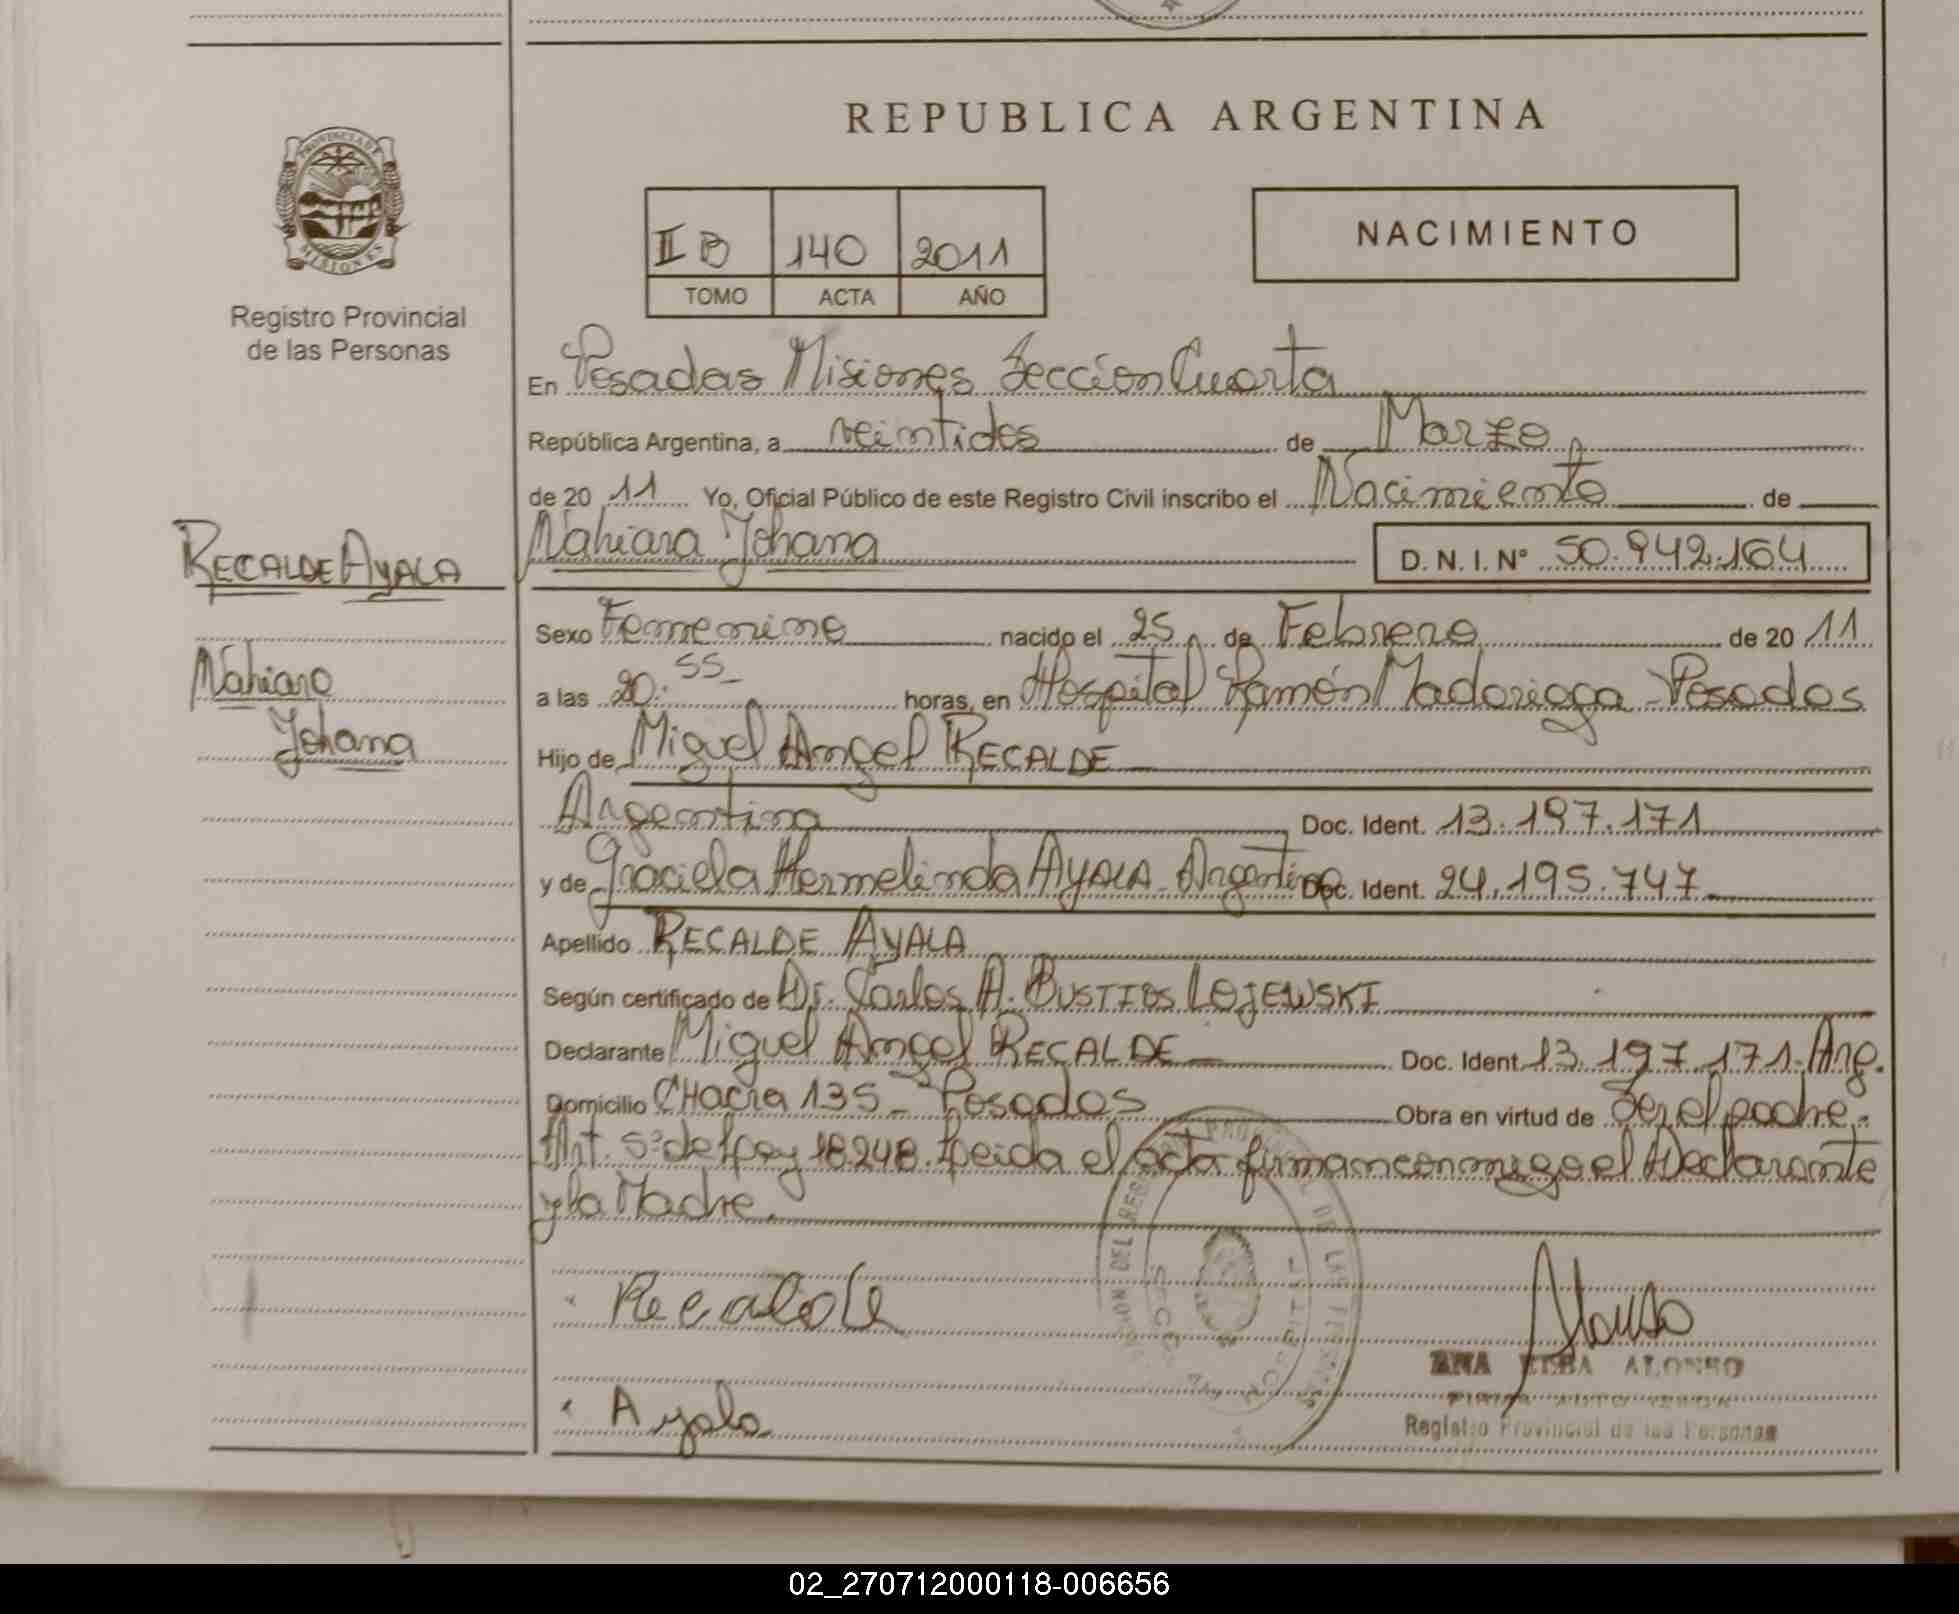 REPUBLICA ARGENTINA
PROVINCIA DE
MISIONES
Registro Provincial
de las Personas
II B 140 2011
TOMO ACTA AÑO
NACIMIENTO
En Posadas Misiones Sección Cuarta
República Argentina, a veintidos de Marzo
de 20 11 Yo, Oficial Público de este Registro Civil inscribo el Nacimiento de
Nahiara Johana D. N. I. Nº 50.942.164
RECALDE AYALA
Nahiara
Johana
Sexo Femenino nacido el 25 de Febrero de 20 11
a las 20:55 horas, en Hospital Ramón Madariaga - Posadas
Hijo de Miguel Angel RECALDE
Argentina Doc. Ident. 13.197.171
y de Graciela Hermelinda AYALA - Argentina Doc. Ident. 24.195.747
Apellido RECALDE AYALA
Según certificado de Dr. Carlos A. BUSTIOS LOJEWSKI
Declarante Miguel Angel RECALDE Doc. Ident. 13.197.171. Arg.
Domicilio CHacra 135 - Posadas Obra en virtud de Ser el padre.
Art. 5º de Ley 18.248. Leida el acta firman conmigo el Declarante
y la Madre.
Recalde
Alonso
ANA ELBA ALONSO
Registro Provincial de las Personas
Ayala
02_270712000118-006656